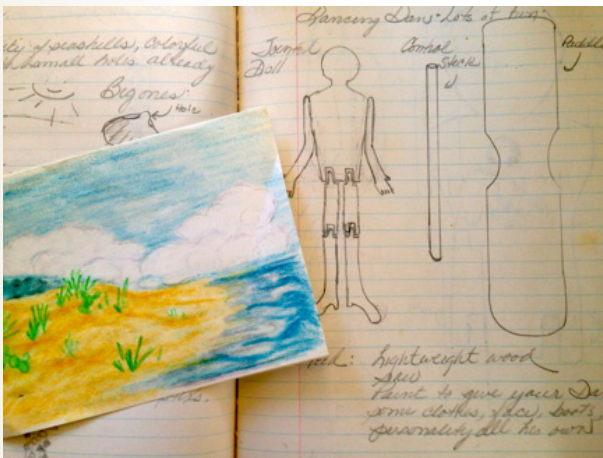 ty of seashells, colorful
small holes already
Big ones:
Hole
Dancing Dan: Lots of fun
Jointed
Doll
Control
Stick
Paddle
Lightweight wood
Saw
Paint to give your Da
some clothes, face, boots,
personality all his own